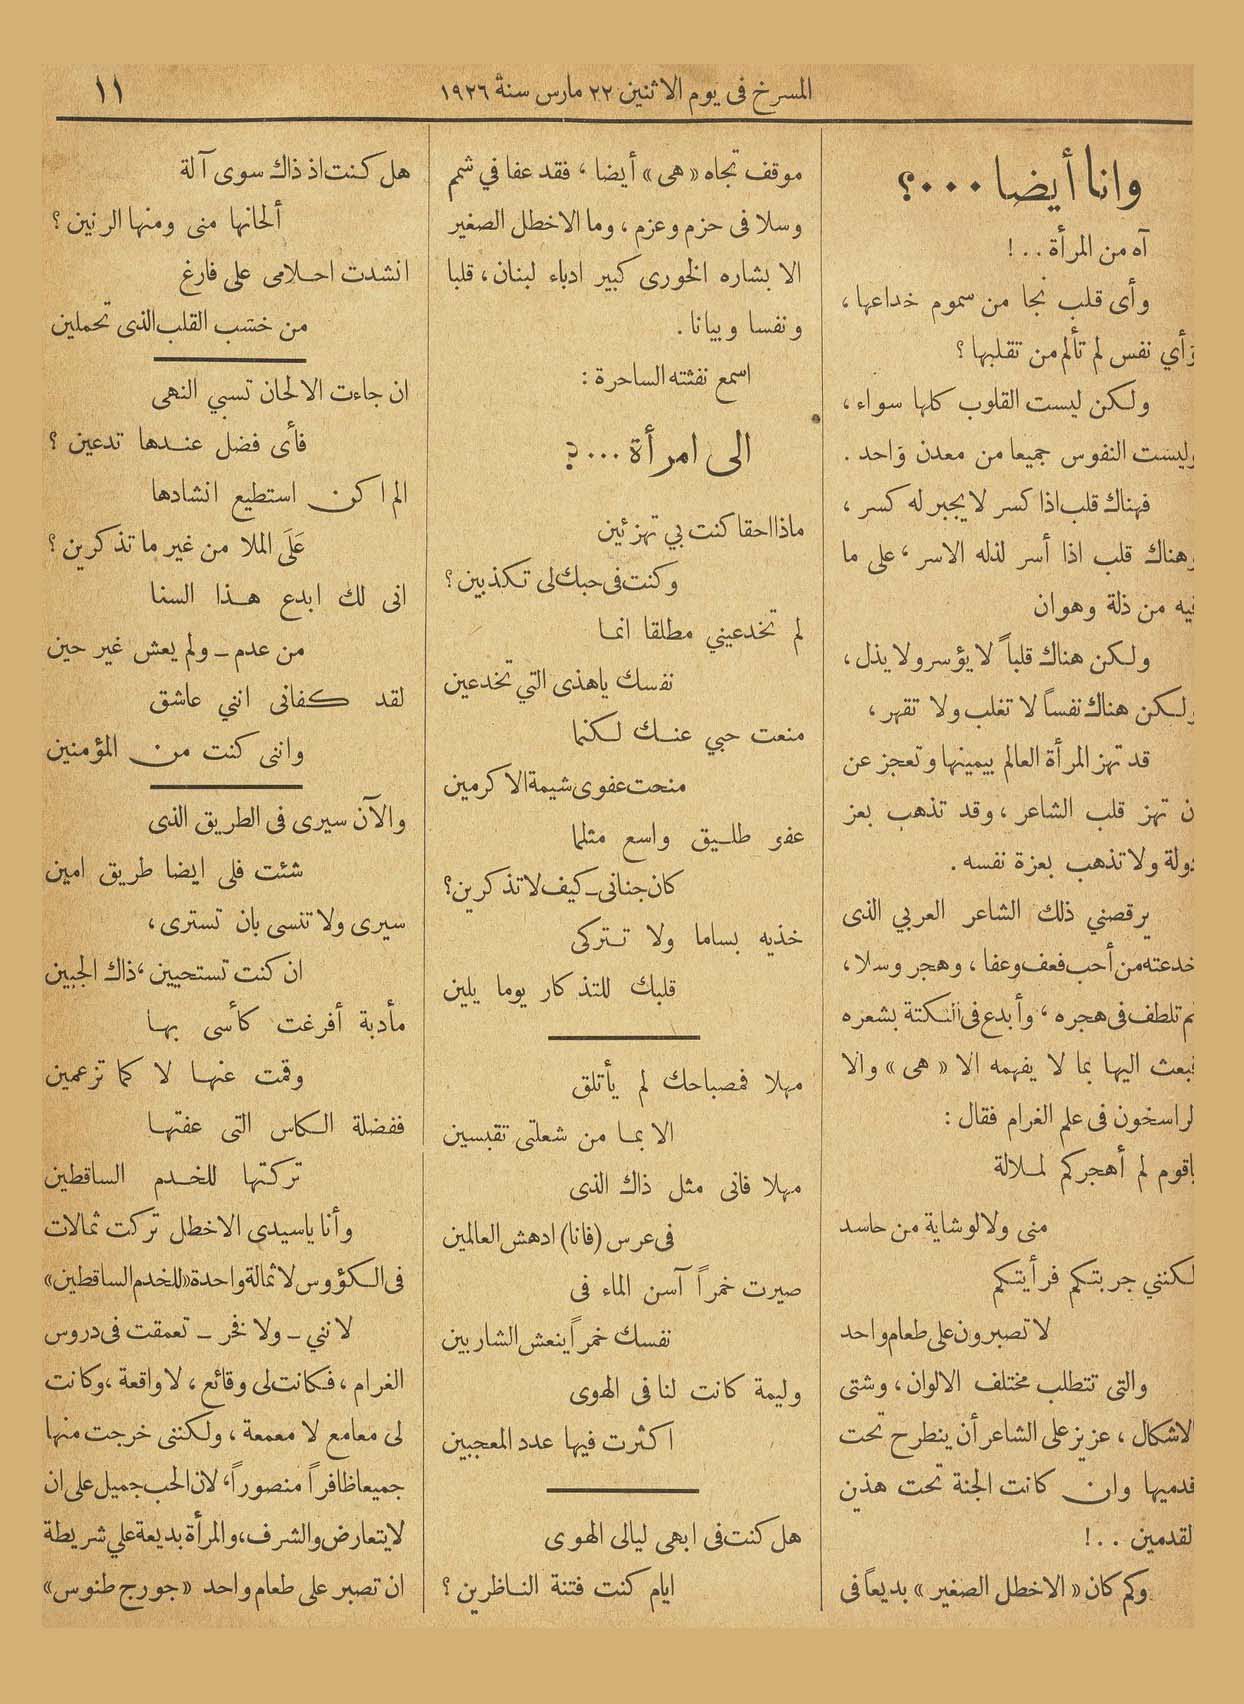 المسرح فى يوم الاثنين ٢٢ مارس سنة ١٩٢٦
١١
وانا أيضا ٠٠٠؟
آه من المرأة . . !
وأى قلب نجا من سموم خداعها،
وأي نفس لم تألم من تقلبها ؟
ولكن ليست القلوب كلها سواء،
وليست النفوس جميعا من معدن واحد .
فهناك قلب اذا كسر لا يجبر له كسر ،
وهناك قلب اذا أسر لذله الاسر ، على ما
فيه من ذلة وهوان
ولكن هناك قلباً لا يؤسر ولا يذل،
ولكن هناك نفساً لا تغلب ولا تقهر،
قد تهز المرأة العالم بيمينها وتعجز عن
ان تهز قلب الشاعر ، وقد تذهب بعز
دولة ولا تذهب بعزة نفسه .
يرقصني ذلك الشاعر العربي الذى
خدعته من أحب فعف وعفا ، وهجر وسلا،
ثم تلطف فى هجره ، وأبدع فى النكتة بشعره
فبعث اليها بما لا يفهمه الا « هى » والا
الراسخون فى علم الغرام فقال :
ياقوم لم أهجركم لملالة
منى ولا لوشاية من حاسد
لكنني جربتكم فرأيتكم
لا تصبرون على طعام واحد
والتى تتطلب مختلف الالوان ، وشتى
الاشكال ، عزيز على الشاعر أن ينطرح تحت
قدميها وان كانت الجنة تحت هذين
القدمين . . !
وكم كان « الاخطل الصغير » بديعاً فى
موقف تجاه « هى » أيضا ، فقد عفا في شمم
وسلا فى حزم وعزم ، وما الاخطل الصغير
الا بشاره الخورى كبير ادباء لبنان ، قلبا
ونفسا وبيانا .
اسمع نفثته الساحرة :
الى امرأة ...؟
ماذا احقا كنت بي تهزئين
وكنت فى حبك لى تكذبين ؟
لم تخدعيني مطلقا انما
نفسك ياهذى التي تخدعين
منعت حبي عنك لكنما
منحت عفوى شيمة الاكرمين
عفو طليق واسع مثلما
كان جنانى ــ كيف لا تذكرين؟
خذيه بساما ولا تتركى
قلبك للتذكار يوما يلين
مهلا فمصباحك لم يأتلق
الا بما من شعلتى تقبسين
مهلا فانى مثل ذاك الذى
فى عرس (قانا) ادهش العالمين
صيرت خمراً آسن الماء فى
نفسك خمراً ينعش الشاربين
وليمة كانت لنا فى الهوى
اكثرت فيها عدد المعجبين
هل كنت فى ابهى ليالى الهوى
ايام كنت فتنة الناظرين ؟
هل كنت اذ ذاك سوى آلة
ألحانها منى ومنها الرنين ؟
انشدت احلامى على فارغ
من خشب القلب الذى تحملين
ان جاءت الالحان تسبي النهى
فأى فضل عندها تدعين ؟
الم اكن استطيع انشادها
عَلَى الملا من غير ما تذكرين ؟
انى لك ابدع هذا السنا
من عدم ــ ولم يعش غير حين
لقد كفانى انني عاشق
وانى كنت من المؤمنين
والآن سيرى فى الطريق الذى
شئت فلى ايضا طريق امين
سيرى ولا تنسى بان تسترى ،
ان كنت تستحيين ، ذاك الجبين
مأدبة أفرغت كأسى بها
وقمت عنها لا كما تزعمين
ففضلة الكاس التى عفتها
تركتها للخدم الساقطين
وأنا ياسيدى الاخطل تركت ثمالات
فى الكؤوس لا ثمالة واحدة «للخدم الساقطين»
لانني ــ ولا فخر ــ تعمقت فى دروس
الغرام ، فكانت لى وقائع ، لا واقعة ، وكانت
لى معامع لا معمعة ، ولكننى خرجت منها
جميعا ظافراً منصوراً، لان الحب جميل على ان
لا يتعارض والشرف، والمرأة بديعة علي شريطة
ان تصبر على طعام واحد «جورج طنوس»